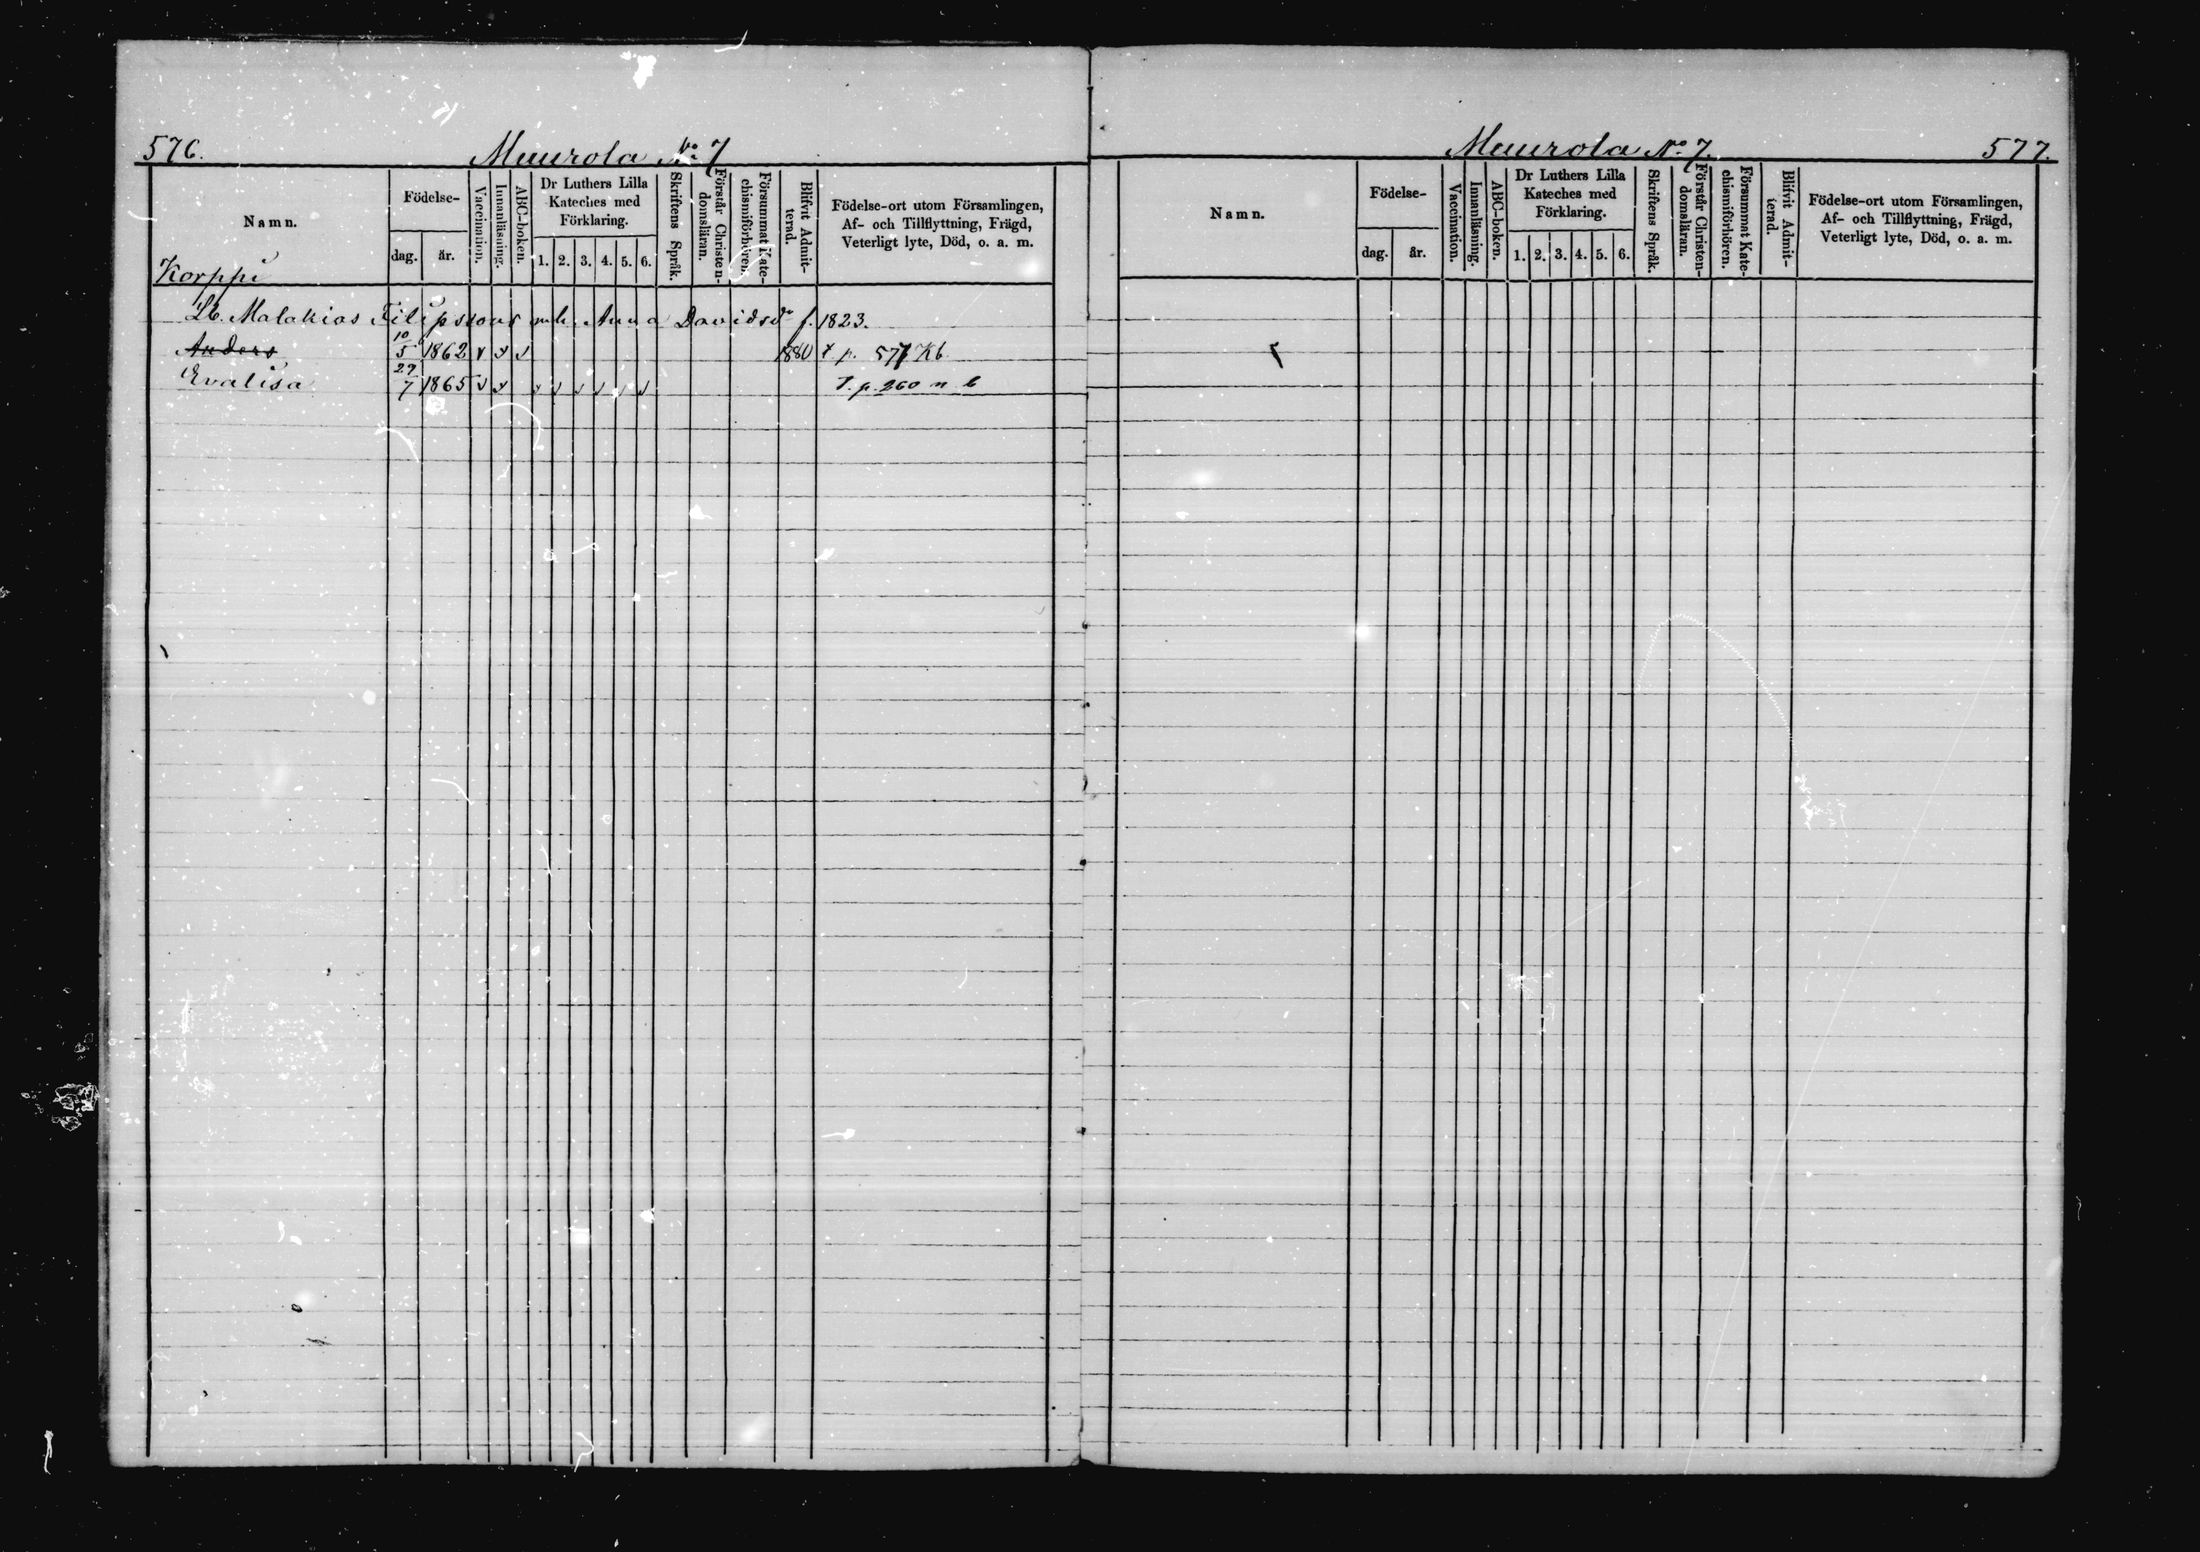 576. Muurola No 7
Namn. Födelse- dag. år. Vaccination. Innanläsning. ABC-boken. Dr Luthers Lilla Kateches med Förklaring. 1. 2. 3. 4. 5. 6. Skriftens Språk. Förstår Christen-domsläran. Försummat Kate-chismiförhören. Blifvit Admit-terad. Födelse-ort utom Församlingen, Af- och Tillflyttning, Frägd, Veterligt lyte, Död, o. a. m.
Korppi
Lb. Malakias Filipssons o. h. Anna Davidsdr f. 1823.
Anders 10/5 1862 v v v 1880 t. p. 577 Kb
Evalisa 27/7 1865 v v v v v v v v T. p. 260 n b
Muurola No 7. 577.
Namn. Födelse- dag. år. Vaccination. Innanläsning. ABC-boken. Dr Luthers Lilla Kateches med Förklaring. 1. 2. 3. 4. 5. 6. Skriftens Språk. Förstår Christen-domsläran. Försummat Kate-chismiförhören. Blifvit Admit-terad. Födelse-ort utom Församlingen, Af- och Tillflyttning, Frägd, Veterligt lyte, Död, o. a. m.